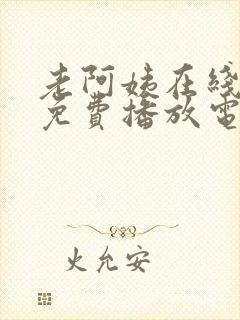 老阿姨在线
免费播放电
火允安